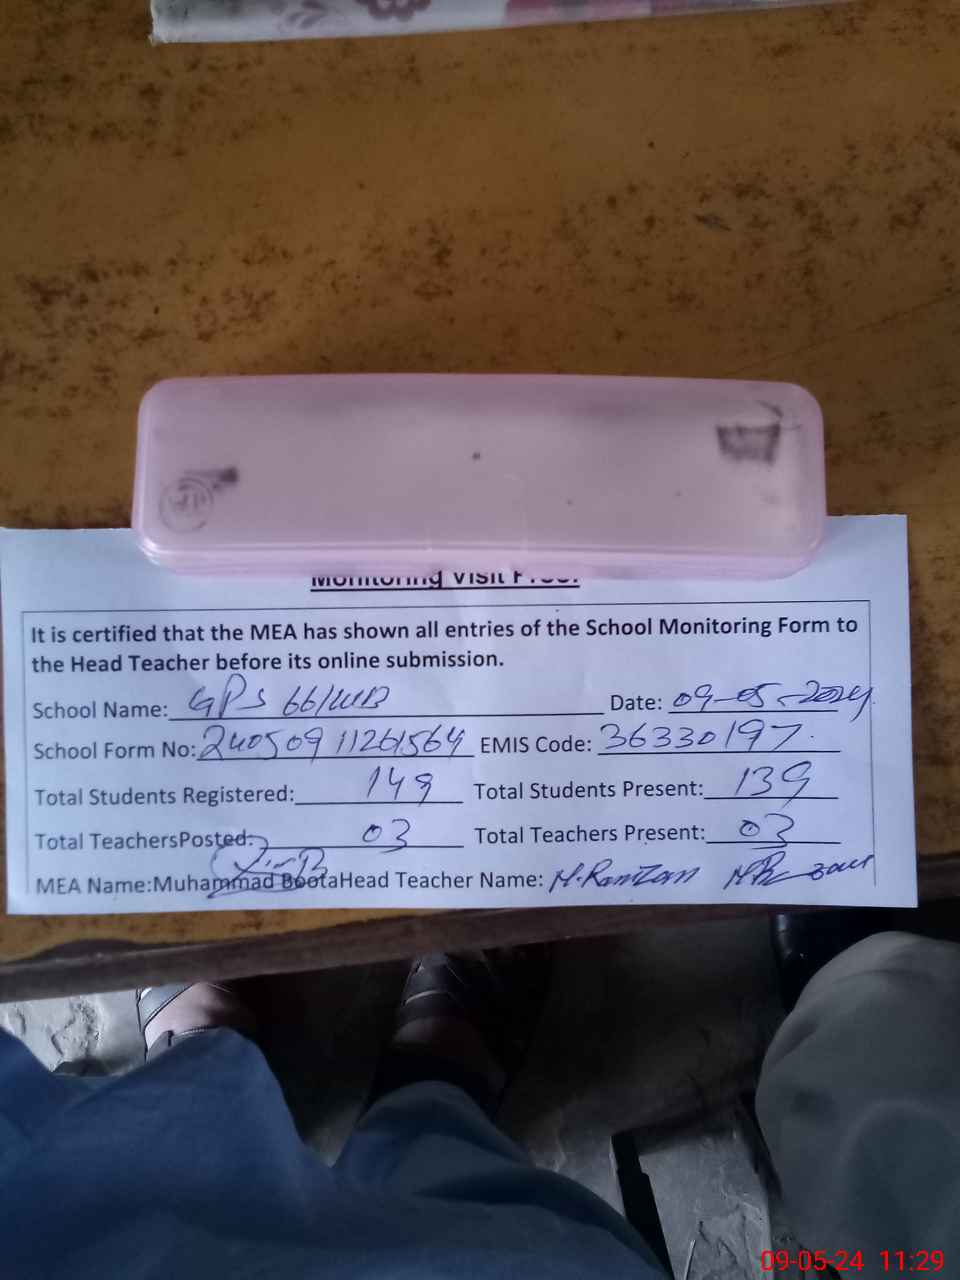 Monitoring Visit Proof
It is certified that the MEA has shown all entries of the School Monitoring Form to
the Head Teacher before its online submission.
School Name: GPS 66/WB Date: 09-05-2024
School Form No: 24050911261564 EMIS Code: 36330197.
Total Students Registered: 149 Total Students Present: 139
Total TeachersPosted: 03 Total Teachers Present: 03
MEA Name:Muhammad BootaHead Teacher Name: M.Ramzan
09-05-24 11:29